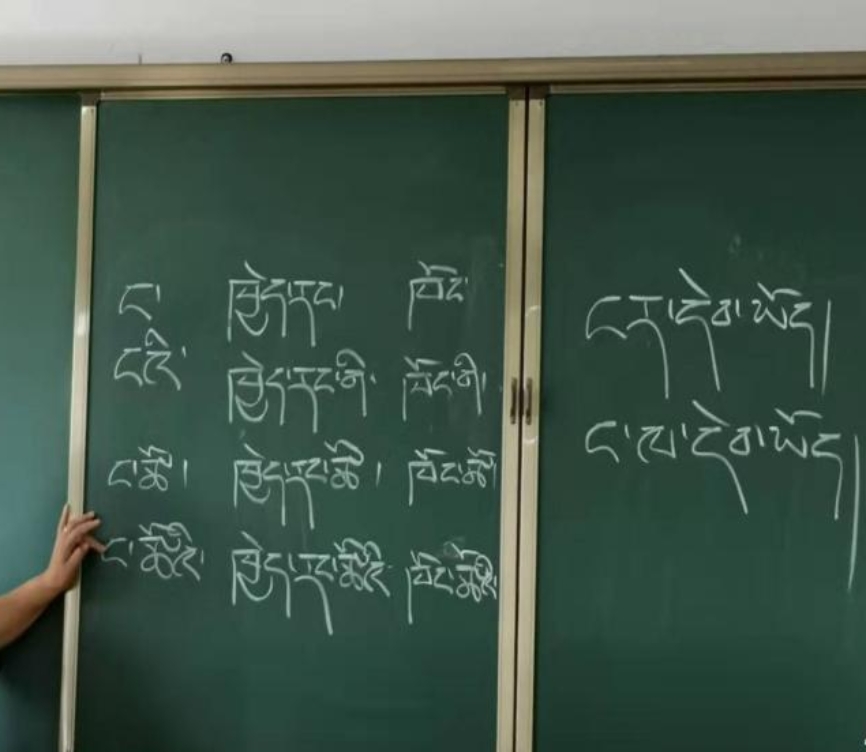 ང་ ཁྱེད་རང་ ཁོང་
ངའི་ ཁྱེད་རང་གི་ ཁོང་གི་
ང་ཚོ། ཁྱེད་རང་ཚོ། ཁོང་ཚོ།
ང་ཚོའི་ ཁྱེད་རང་ཚོའི་ ཁོང་ཚོའི་
ངར་དེབ་ཡོད།
ང་ལ་དེབ་ཡོད།